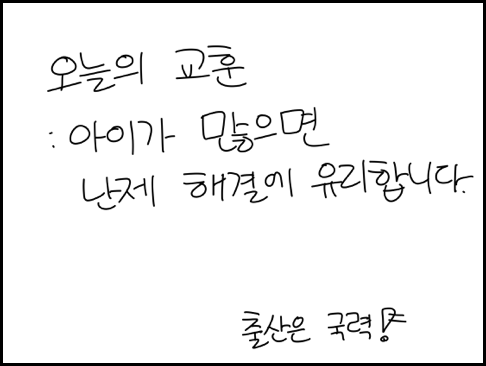 오늘의 교훈
: 아이가 많으면
난제 해결에 유리합니다.
출산은 국력!